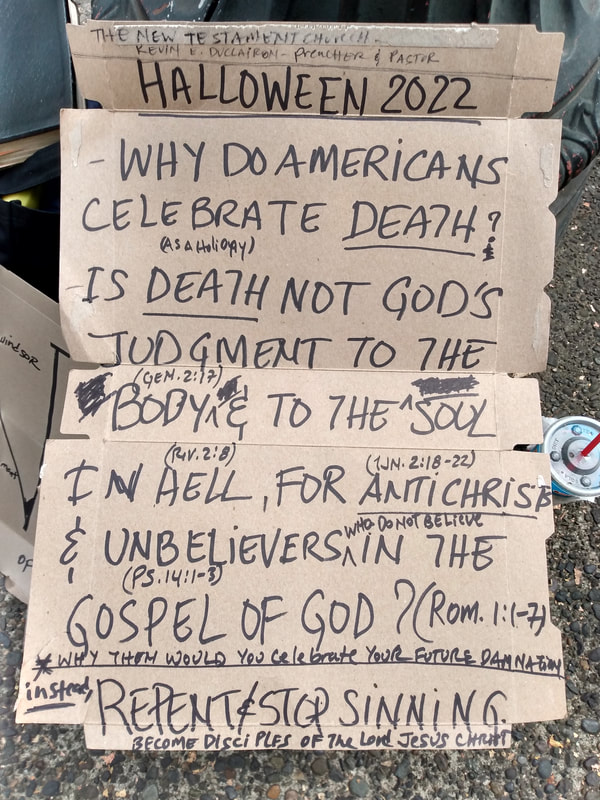 THE NEW TESTAMENT CHURCH -
KEVIN E. DUCLAIRON - PREACHER & PASTOR
HALLOWEEN 2022
- WHY DO AMERICANS
CELEBRATE DEATH?
(AS A HOLIDAY)
&
- IS DEATH NOT GOD'S
JUDGMENT TO THE
(GEN. 2:17)
BODY & TO THE SOUL
(REV. 2:8)
(1JN. 2:18-22)
IN HELL, FOR ANTICHRISTS
WHO DO NOT BELIEVE
& UNBELIEVERS IN THE
(PS. 14:1-3)
GOSPEL OF GOD? (ROM. 1:1-7)
* WHY THEN WOULD YOU Celebrate YOUR FUTURE DAMNATION
instead, REPENT & STOP SINNING.
BECOME DISCIPLES OF THE LORD JESUS CHRIST
windsor
OF